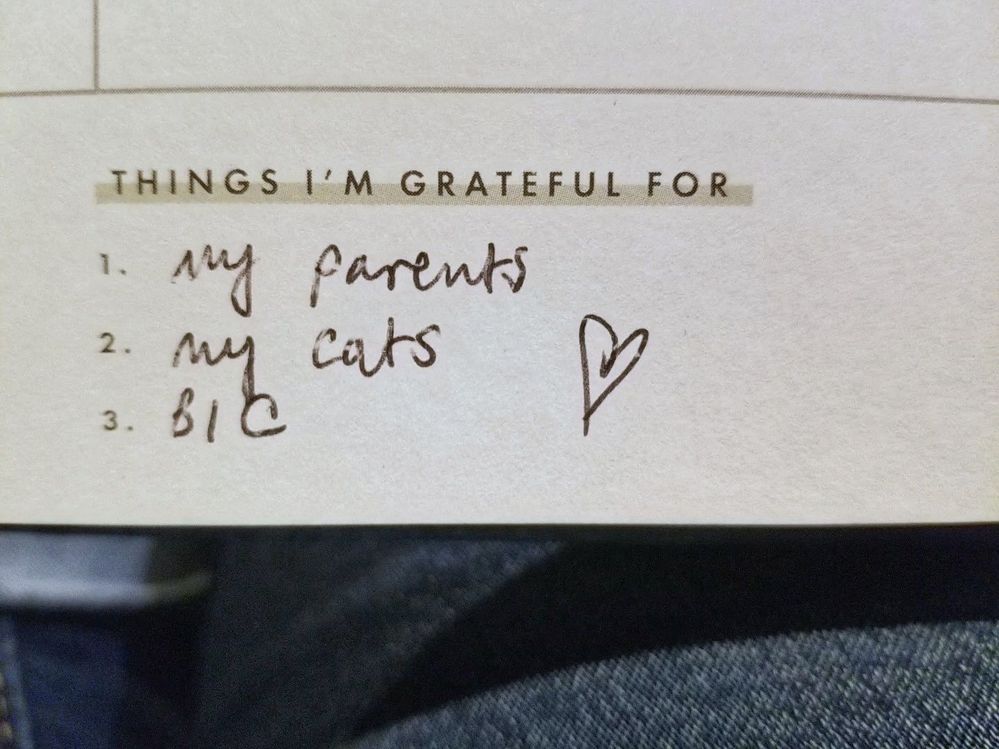 THINGS I'M GRATEFUL FOR
1. my parents
2. my cats
3. BIC